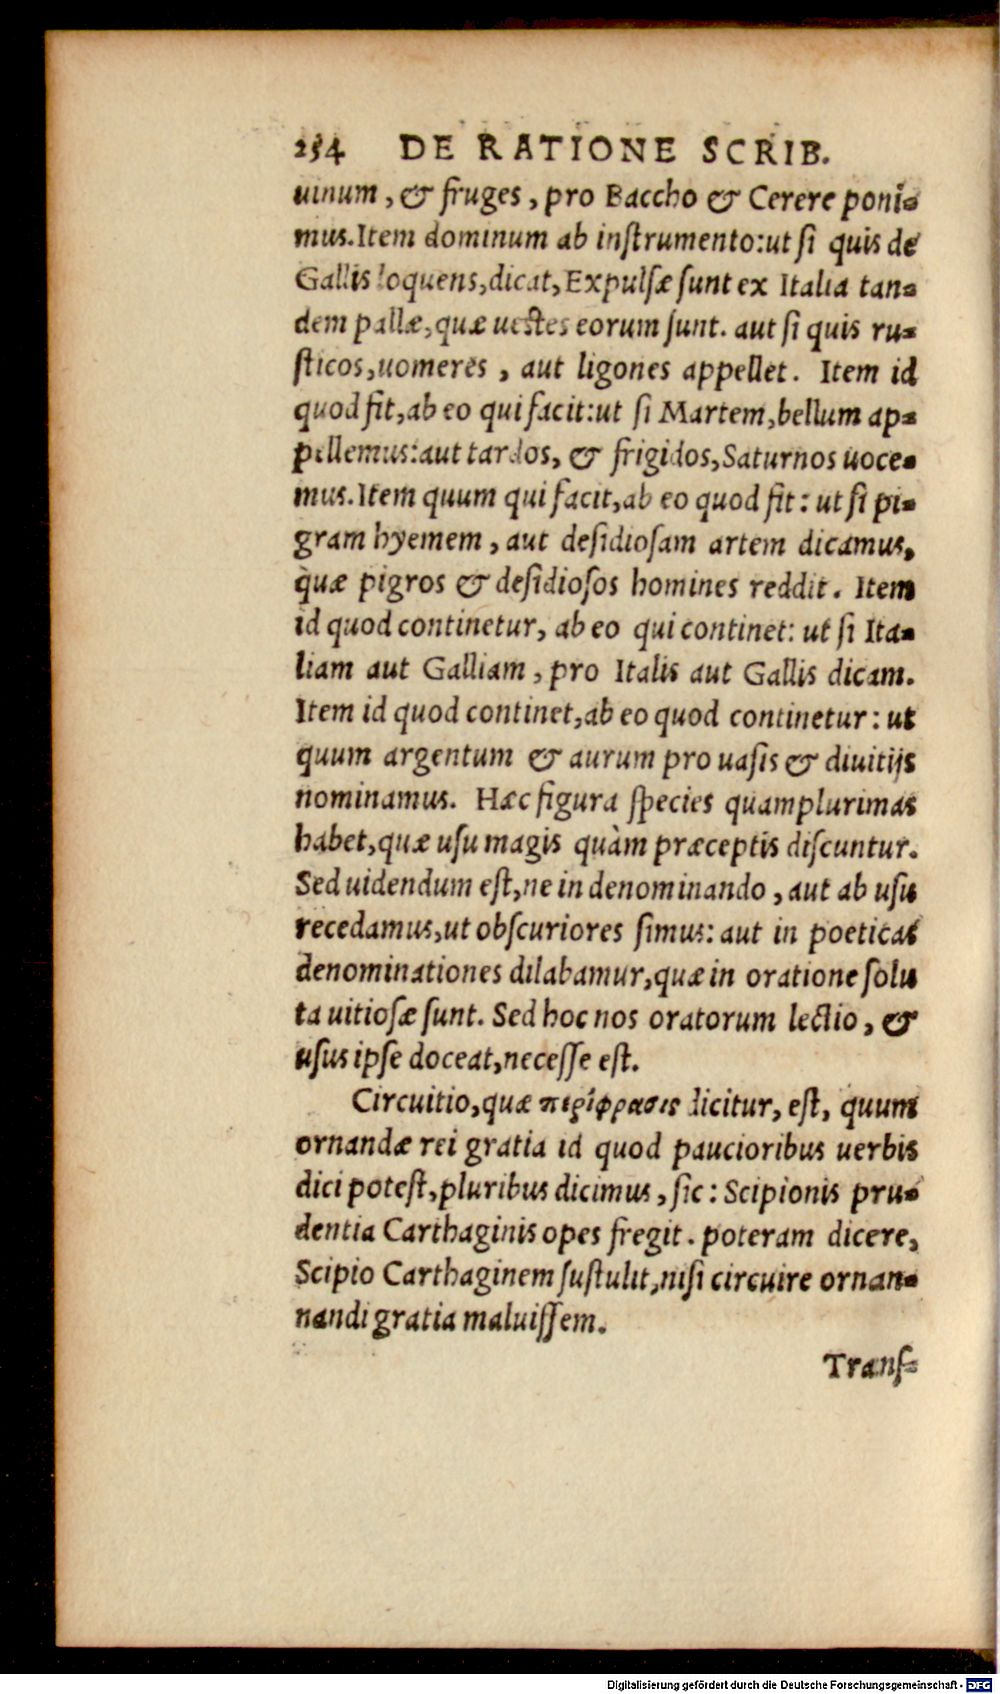 254 DE RATIONE SCRIB.
uinum, & fruges, pro Baccho & Cerere poni-
mus. Item dominum ab instrumento: ut si quis de
Gallis loquens, dicat, Expulsæ sunt ex Italia tan-
dem pallæ, quæ uestes eorum sunt. aut si quis ru-
sticos, uomeres, aut ligones appellet. Item id
quod fit, ab eo qui facit: ut si Martem, bellum ap-
pellemus: aut tardos, & frigidos, Saturnos uoce-
mus. Item quum qui facit, ab eo quod fit: ut si pi-
gram hyemem, aut desidiosam artem dicamus,
quæ pigros & desidiosos homines reddit. Item
id quod continetur, ab eo qui continet: ut si Ita-
liam aut Galliam, pro Italis aut Gallis dicam.
Item id quod continet, ab eo quod continetur: ut
quum argentum & aurum pro uasis & diuitijs
nominamus. Hæc figura species quamplurimas
habet, quæ usu magis quàm præceptis discuntur.
Sed uidendum est, ne in denominando, aut ab usu
recedamus, ut obscuriores simus: aut in poeticas
denominationes dilabamur, quæ in oratione solu
ta uitiosæ sunt. Sed hoc nos oratorum lectio, &
usus ipse doceat, necesse est.
Circuitio, quæ περίφρασις dicitur, est, quum
ornandæ rei gratia id quod paucioribus uerbis
dici potest, pluribus dicimus, sic: Scipionis pru-
dentia Carthaginis opes fregit. poteram dicere,
Scipio Carthaginem sustulit, nisi circuire ornan-
nandi gratia maluissem.
Trans-
Digitalisierung gefördert durch die Deutsche Forschungsgemeinschaft - DFG